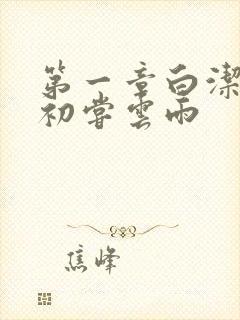 第一章白潔
初嘗雲雨
焦峰